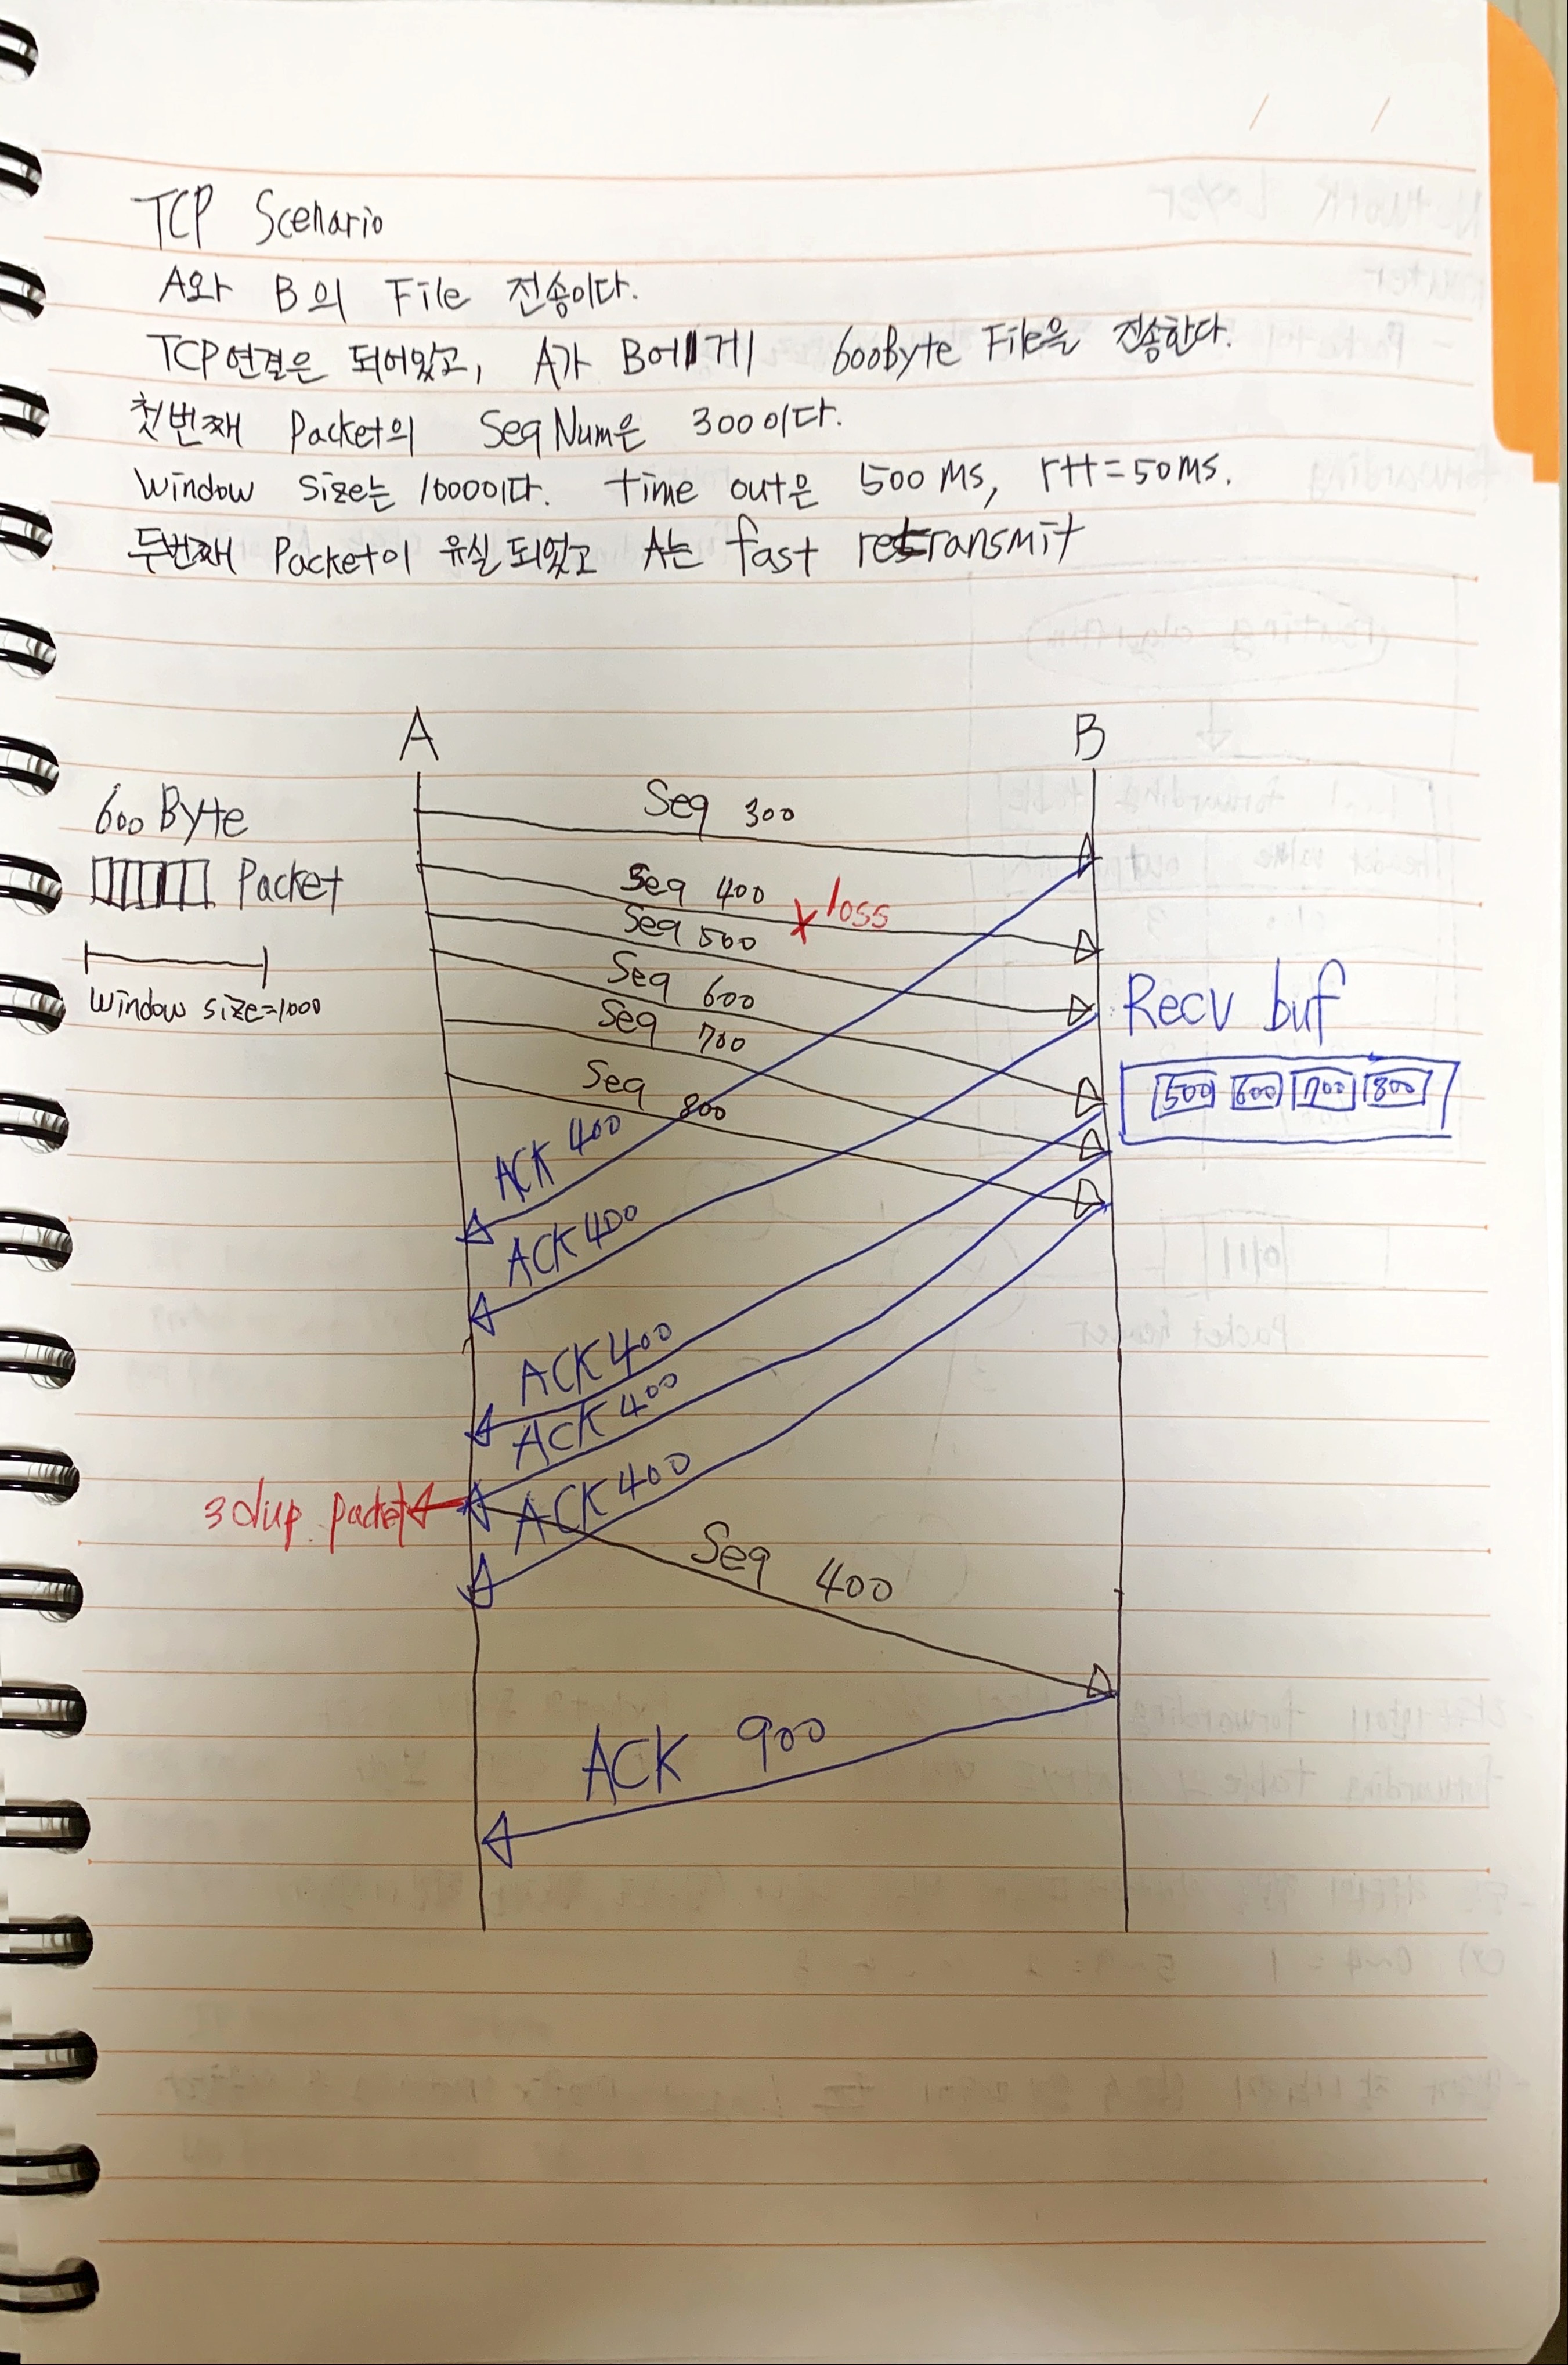 TCP Scenario
A와 B의 File 전송이다.
TCP연결은 되어있고, A가 B에게 600Byte File을 전송한다.
첫번째 Packet의 Seq Num은 300이다.
Window size는 1000이다. time out은 500ms, rtt=50ms.
두번째 Packet이 유실되었고 A는 fast retransmit
A
B
600 Byte
Packet
Window size=1000
Seq 300
Seq 400
loss
Seq 500
Seq 600
Seq 700
Seq 800
Recv buf
500 600 700 800
ACK 400
ACK 400
ACK 400
ACK 400
ACK 400
3 dup. packet
Seq 400
ACK 900